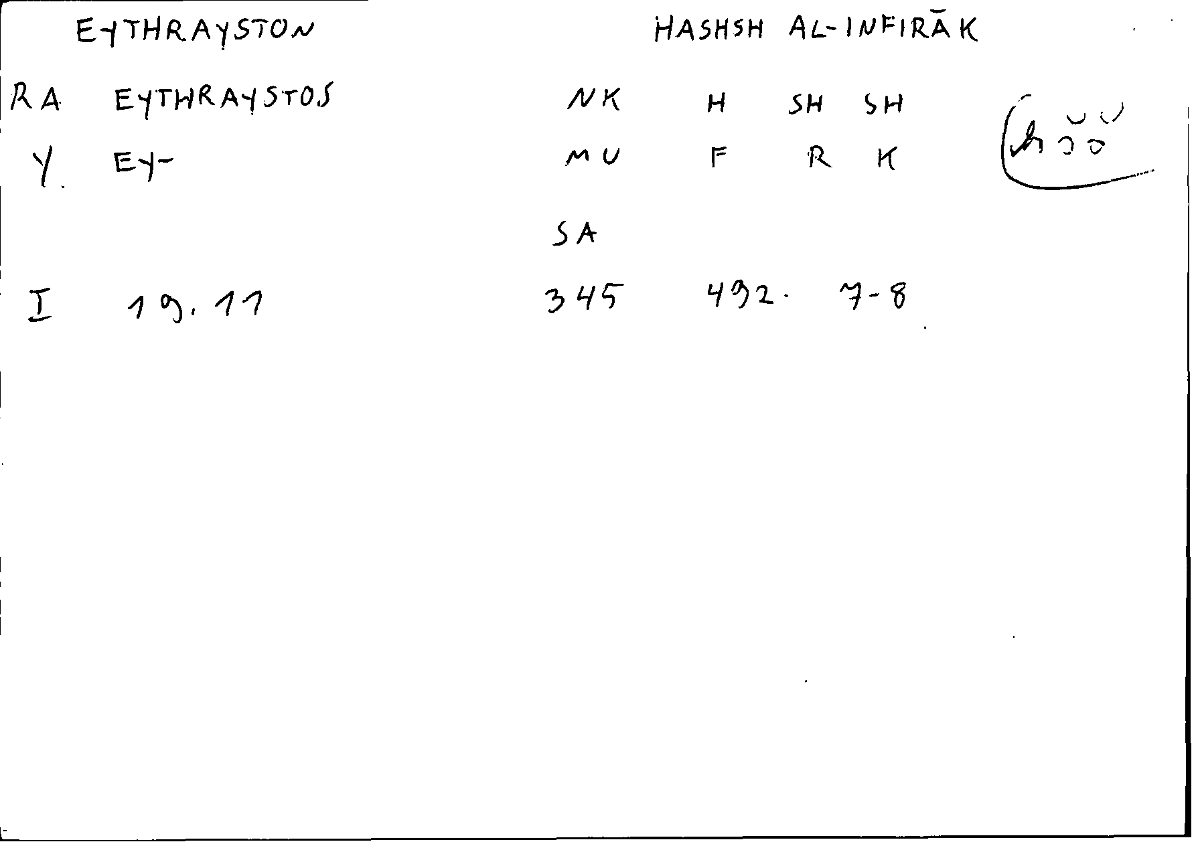 EYTHRAYSTON HASHSH AL-INFIRĀK
RA EYTHRAYSTOS NK H SH SH
Y. EY- MU F R K
SA
I 19.11 345 492. 7-8